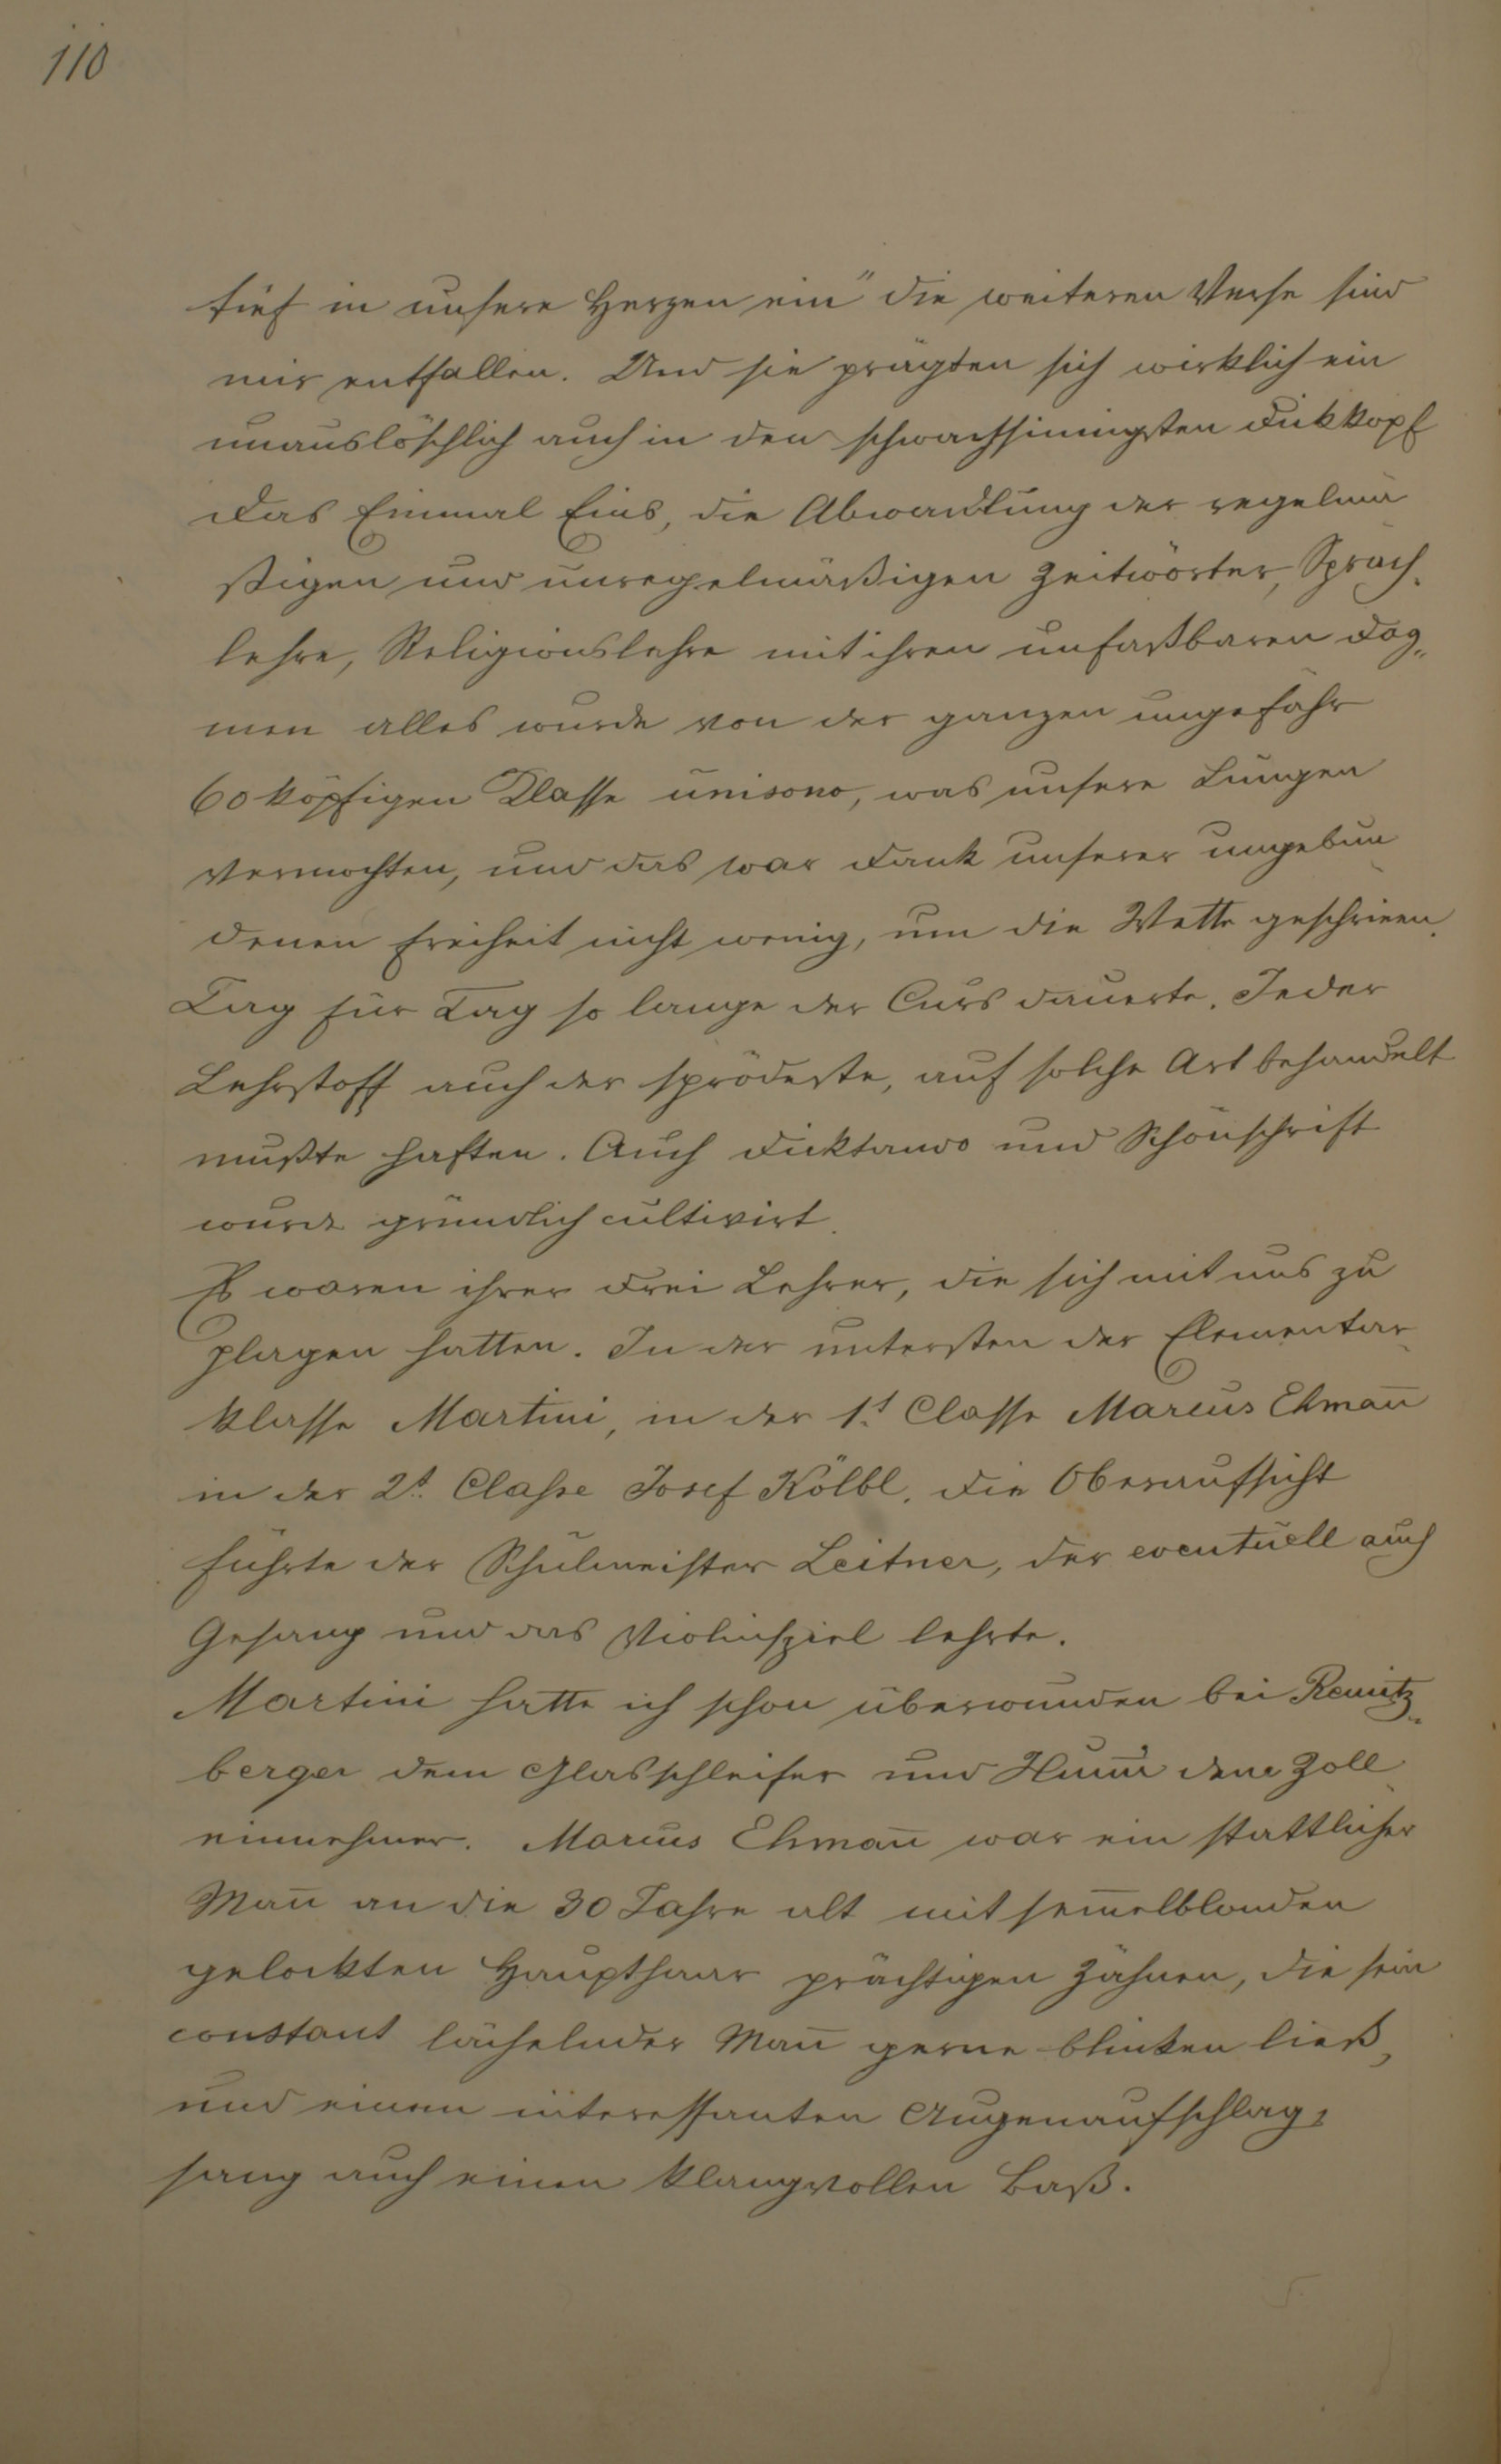 110
tief in unsere Herzen ein" die weiteren Verse sind
mir entfallen. Und sie prägten sich wirklich ein
unauslöschlich auch in den schwachsinnigsten Dickkopf
das Einmal Eins, die Abwandlung der regelmä
ßigen und unregelmäßigen Zeitwörter, Sprach-
lehre, Religionslehre mit ihren unfaßbaren Dog-
men alles wurde von der ganzen ungefähr
60 köpfigen Klasse unisono, was unsere Lungen
vermochten, und das war Dank unserer ungebun
denen Freiheit nicht wenig, um die Wette geschrieen.
Tag für Tag so lange der Curs dauerte. Jeder
Lehrstoff auch der sprödeste, auf solche Art behandelt
mußte haften. Auch Dicktando und Schönschrift
wurde gründlich cultivirt.
Es waren ihrer drei Lehrer, die sich mit uns zu
plagen hatten. In der untersten der Elementar-
klasse Martini, in der 1t. Classe Marcus Ehmañ
in der 2t. Classe Josef Kölbl. Die Oberaufsicht
führte der Schulmeister Leitner, der eventuell auch
Gesang und das Violinspiel lehrte.
Martini hatte ich schon überwunden bei
berger dem Glasschleifer und dem Zoll
einnehmer. Marcus Ehmañ war ein stattlicher
Mañ an die 30 Jahre alt mit sem̄elblonden
gelockten Haupthaar prächtigen Zähnen, die sein
constant lächelnder Mañ gerne blinken ließ,
und einen interessanten Augenaufschlag,
sang auch einen klangvollen Baß.